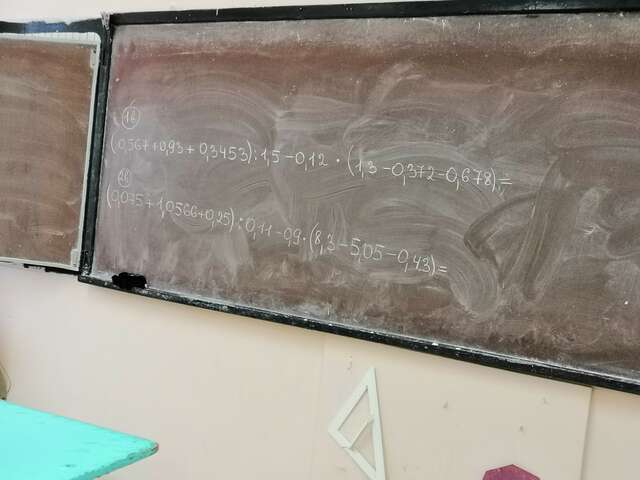 1в
(0,567+0,93+0,3453):1,5-0,12·(1,3-0,372-0,678)=
2в
(0,075+1,0566+0,25):0,11-0,9·(8,3-5,05-0,43)=